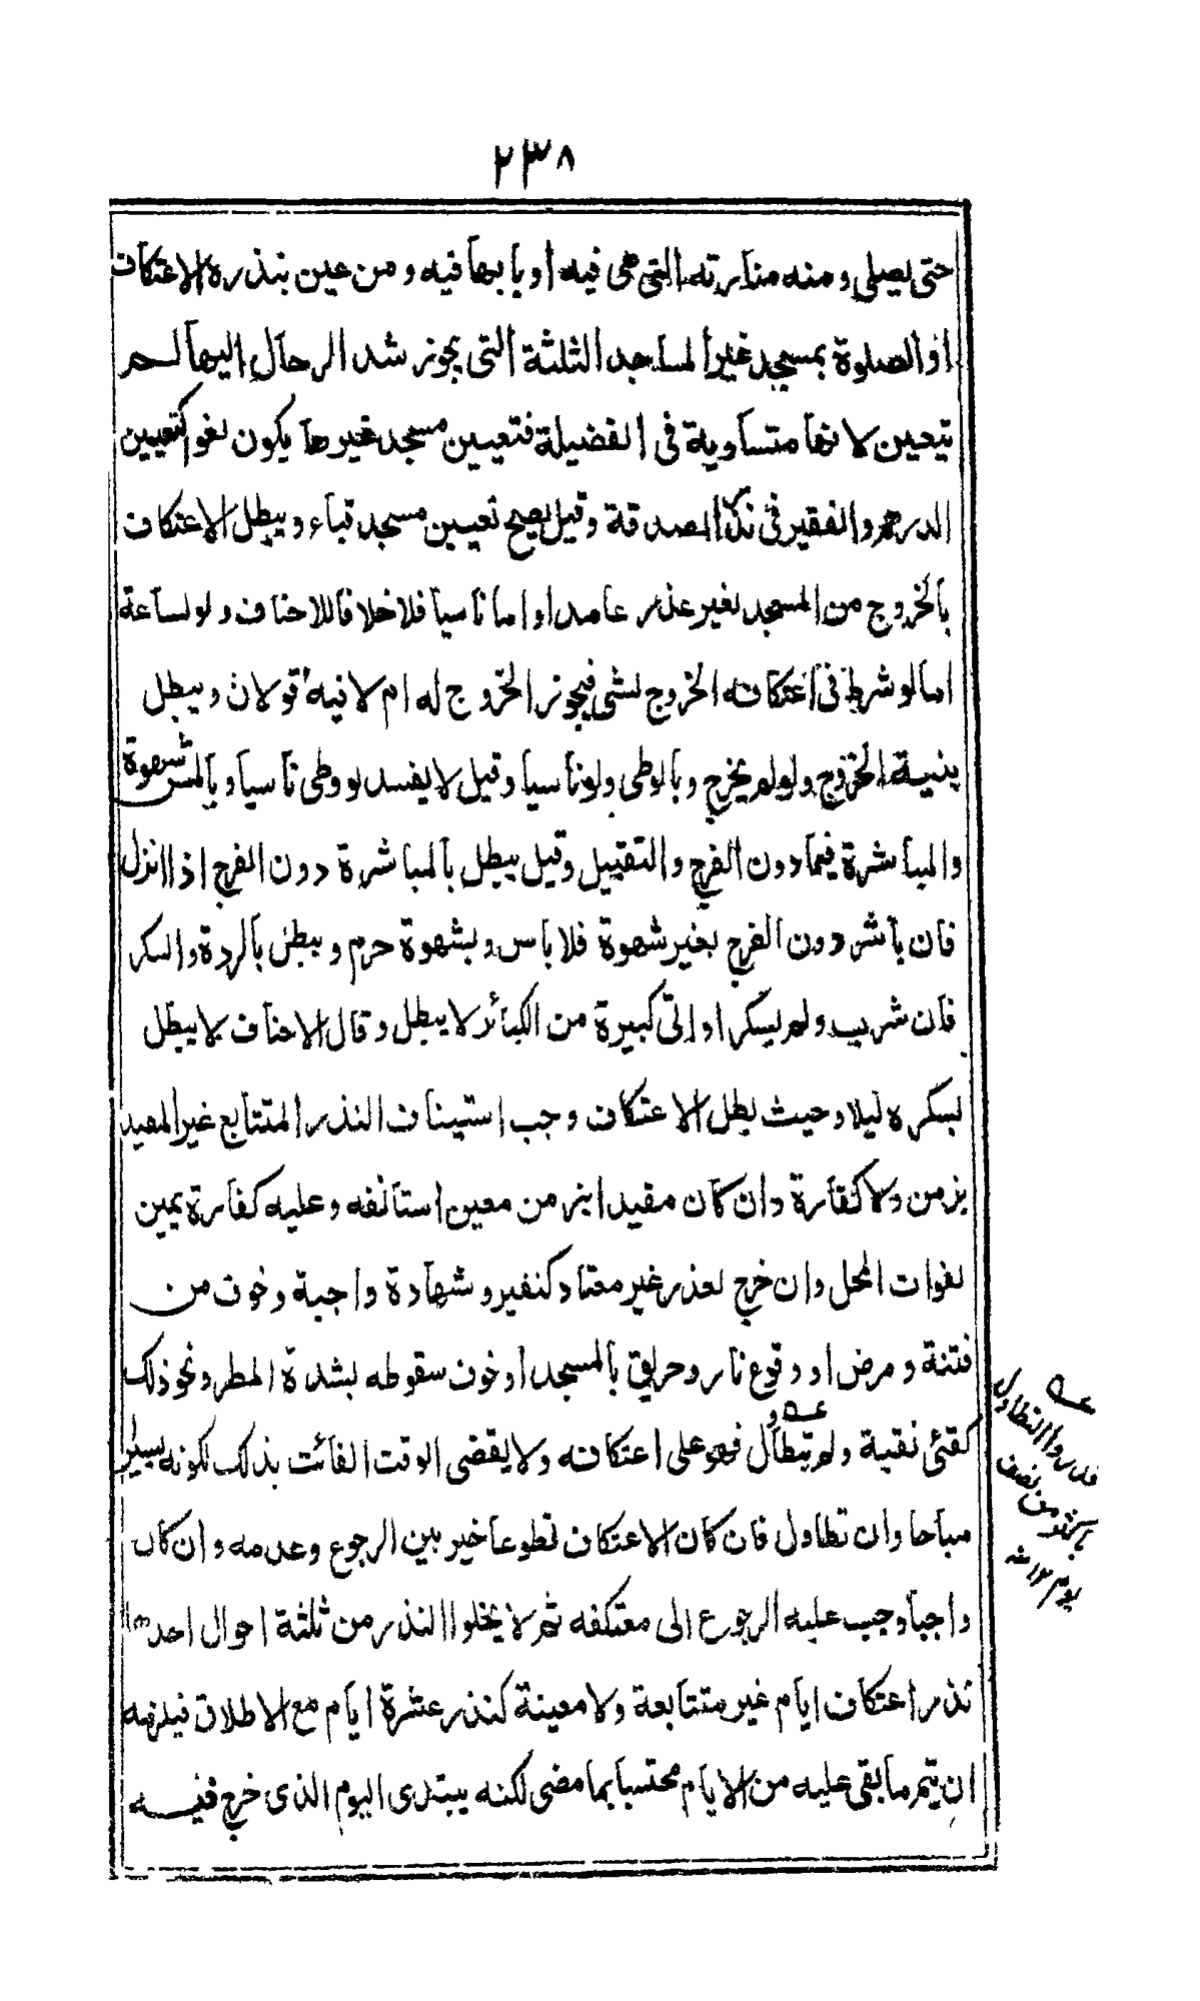 ٢٣٨
حتى يصلى ومنه منارته التى هى فيه او بابها فيه ومن عين بنذره الاعتكاف
او الصلوة بمسجد غير المساجد الثلثة التى يجوز شد الرحال اليها لم
تيعين لانها متساوية فى الفضيلة فتعيين مسجد غيرها يكون لغوا كتعيين
الدرهم والفقير فى نذر الصدقة وقيل يصح تعيين مسجد قباء ويبطل الاعتكاف
بالخروج من المسجد لغير عذر عامدا واما ناسيا فلا خلافا للاحناف ولو لساعة
اما لو شرط فى اعتكافه الخروج لشى فيجوز الخروج له ام لا فيه قولان ويبطل
بنية الخروج ولو لم يخرج وبالوطى ولو ناسيا وقيل لا يفسد لو وطى ناسيا وبالمس بشهوة
والمباشرة فيما دون الفرج والتقبيل وقيل يبطل بالمباشرة دون الفرج اذا انزل
فان باشر دون الفرج بغير شهوة فلا باس وبشهوة حرم ويبطل بالردة والسكر
فان شرب ولم يسكر او اتى كبيرة من الكبائر لا يبطل وقال الاحناف لا يبطل
بسكره ليلا وحيث بطل الاعتكاف وجب استيناف النذر المتتابع غير المقيد
بزمن ولا كفارة وان كان مقيدا بزمن معين استانفه وعليه كفارة يمين
لفوات المحل وان خرج لعذر غير معتاد كنفير وشهادة واجبة وخوف من
فتنة ومرض او وقوع نار وحريق بالمسجد او خوف سقوطه بشدة المطر ونحو ذلك
كقئ نقية ولم يتطاول فهو على اعتكافه ولا يقضى الوقت الفائت بذلك لكونه يسيرا
مباحا وان تطاول فان كان الاعتكاف تطوعا خير بين الرجوع وعدمه وان كان
واجبا وجب عليه الرجوع الى معتكفه ثم لا يخلوا النذر من ثلثة احوال احدها
نذر اعتكاف ايام غير متتابعة ولا معينة كنذر عشرة ايام مع الاطلاق فيلزمه
ان يتم ما بقى عليه من الايام محتسبا بما مضى لكنه يبتدى اليوم الذى خرج فيه
عه
قدروا التطاول
باكثر من نصف
يوم